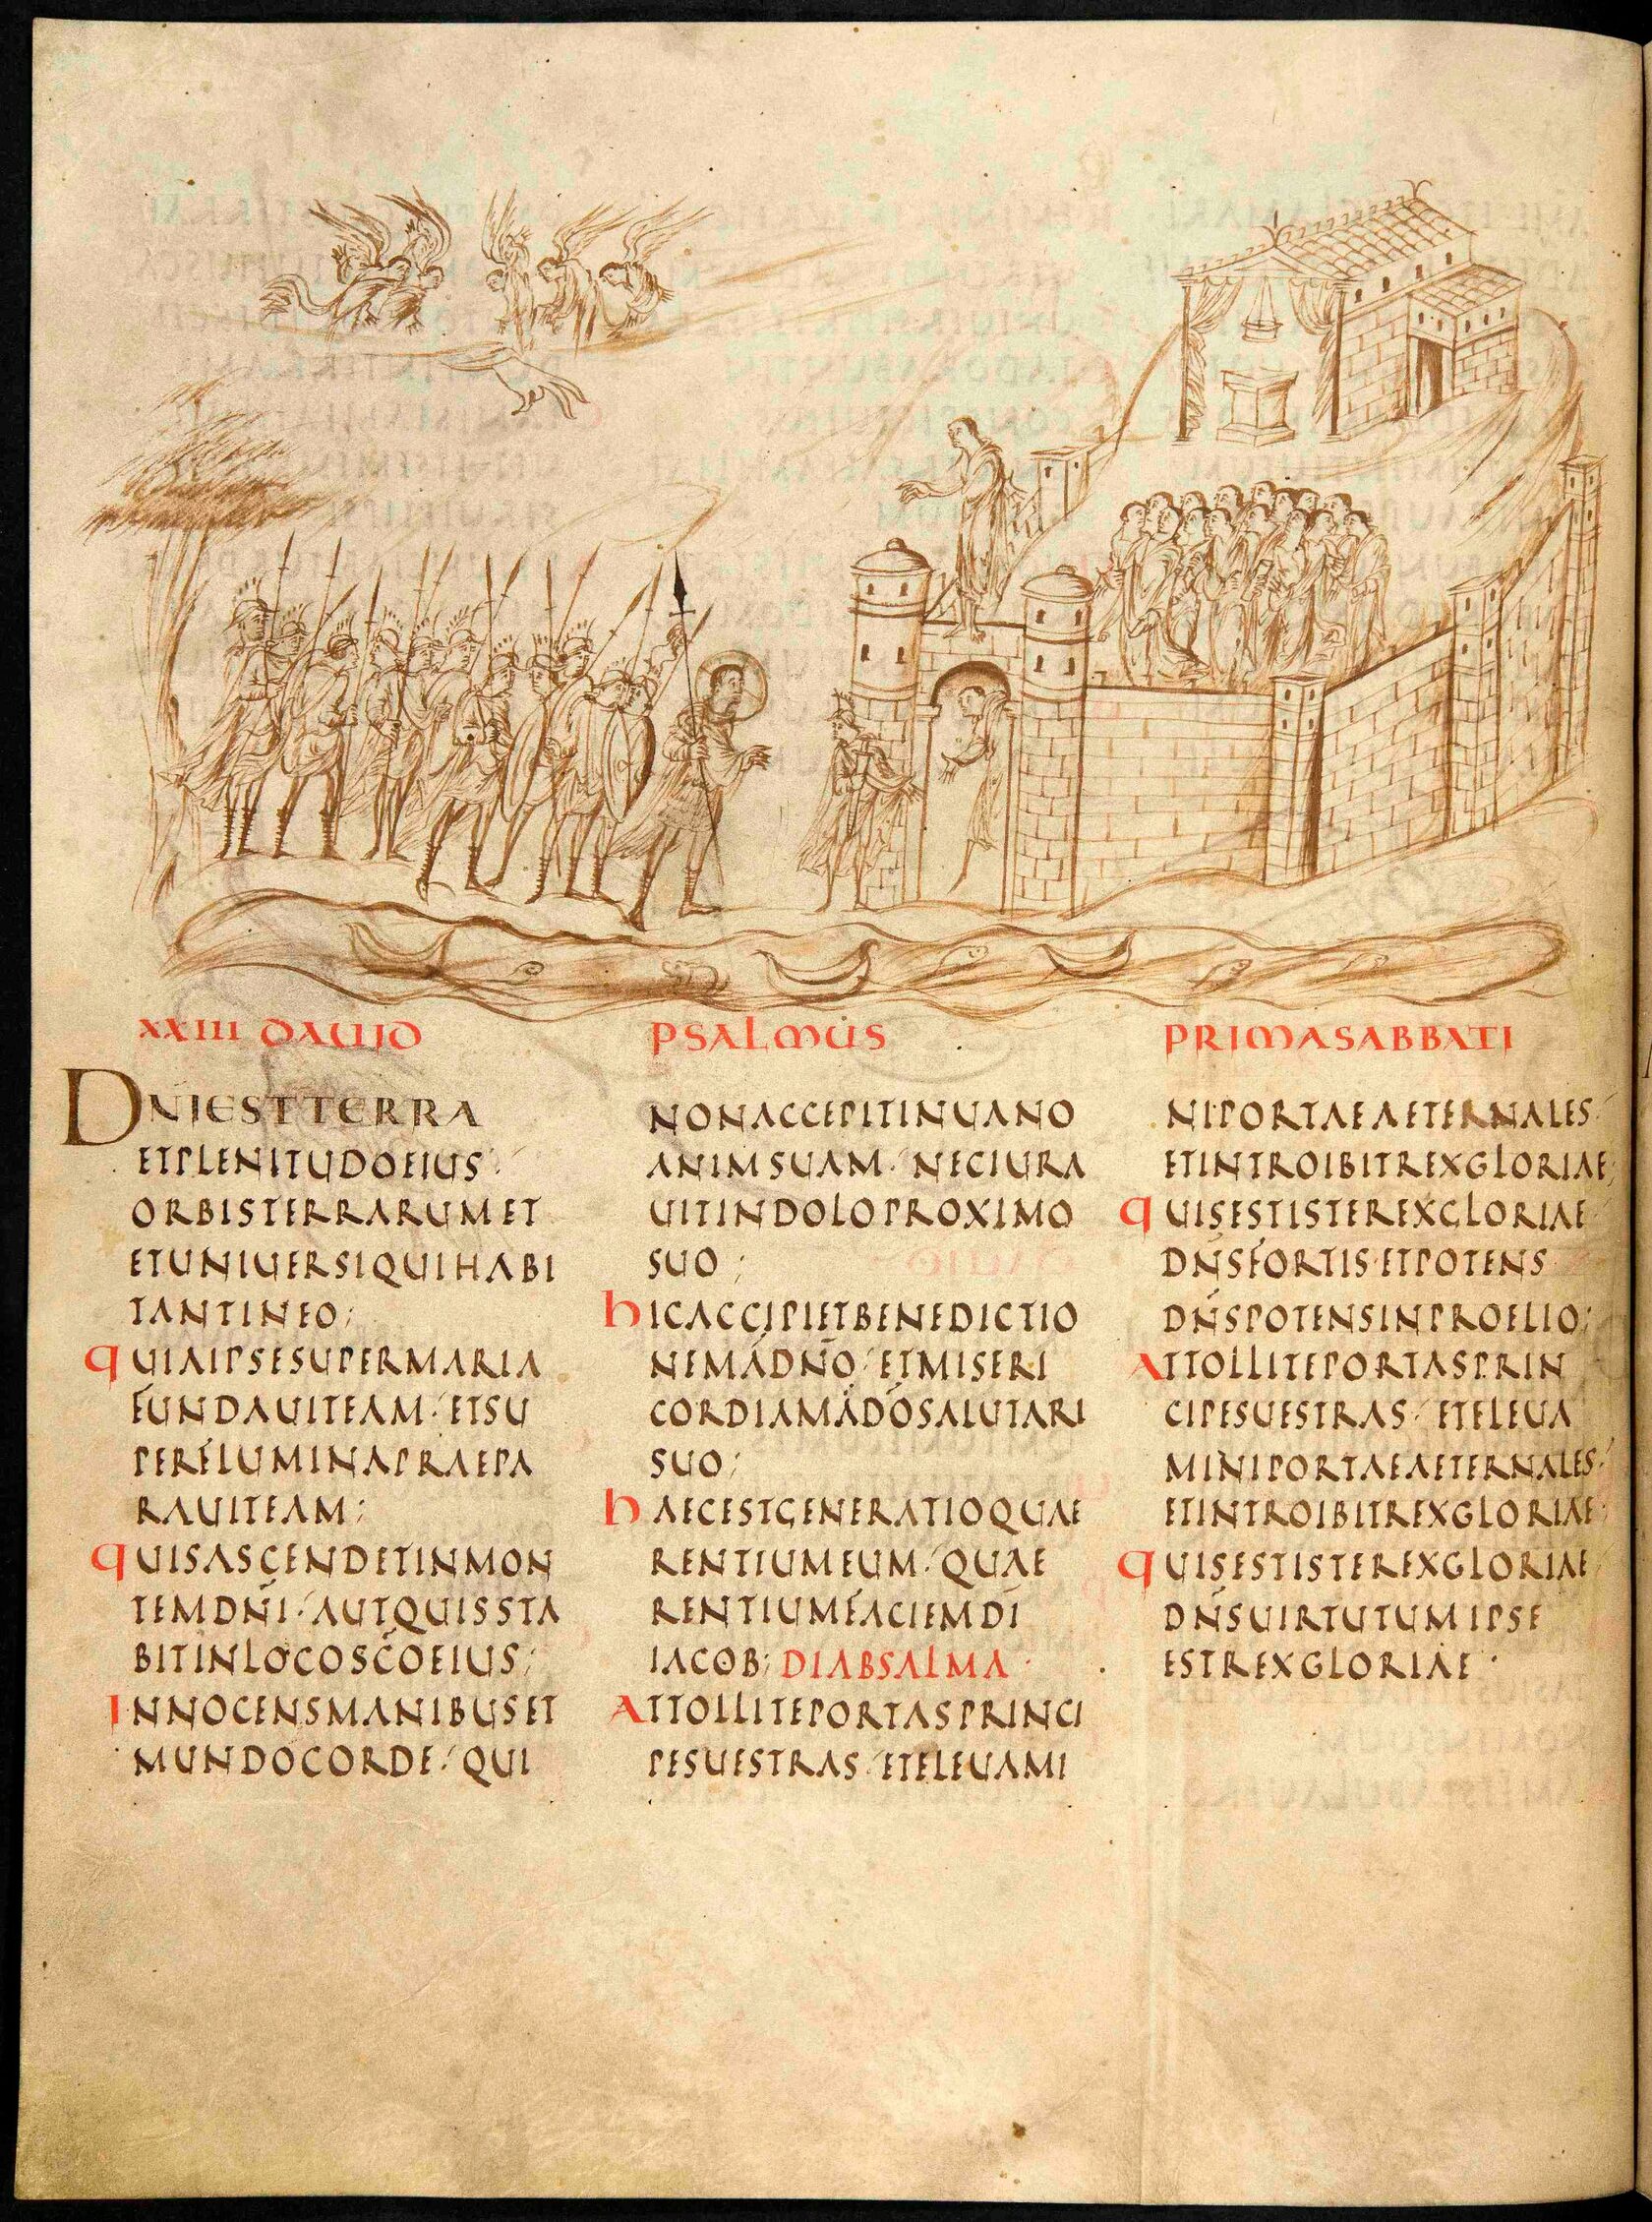 XXIII DAUID PSALMUS PRIMA SABBATI
DN̄I EST TERRA
ET PLENITUDO EIUS·
ORBIS TERRARUM ET
ET UNIUERSI QUI HABI
TANT IN EO;
QUIA IPSE SUPER MARIA
FUNDAUIT EAM· ET SU
PER FLUMINA PRAEPA
RAUIT EAM;
QUIS ASCENDET IN MON
TEM DN̄I· AUT QUIS STA
BIT IN LOCO SC̄O EIUS;
INNOCENS MANIBUS ET
MUNDO CORDE· QUI
NON ACCEPIT IN UANO
ANIM SUAM· NEC IURA
UIT IN DOLO PROXIMO
SUO;
HIC ACCIPIET BENEDICTIO
NEM A DN̄O· ET MISERI
CORDIAM A DŌ SALUTARI
SUO;
HAEC EST GENERATIO QUAE
RENTIUM EUM· QUAE
RENTIUM FACIEM DĪ
IACOB; DIABSALMA·
ATTOLLITE PORTAS PRINCI
PES UESTRAS· ET ELEUAMI
NI PORTAE AETERNALES·
ET INTROIBIT REX GLORIAE;
QUIS EST ISTE REX GLORIAE·
DN̄S FORTIS ET POTENS
DN̄S POTENS IN PROELIO;
ATTOLLITE PORTAS PRIN
CIPES UESTRAS· ET ELEUA
MINI PORTAE AETERNALES·
ET INTROIBIT REX GLORIAE;
QUIS EST ISTE REX GLORIAE
DN̄S UIRTUTUM IPSE
EST REX GLORIAE·